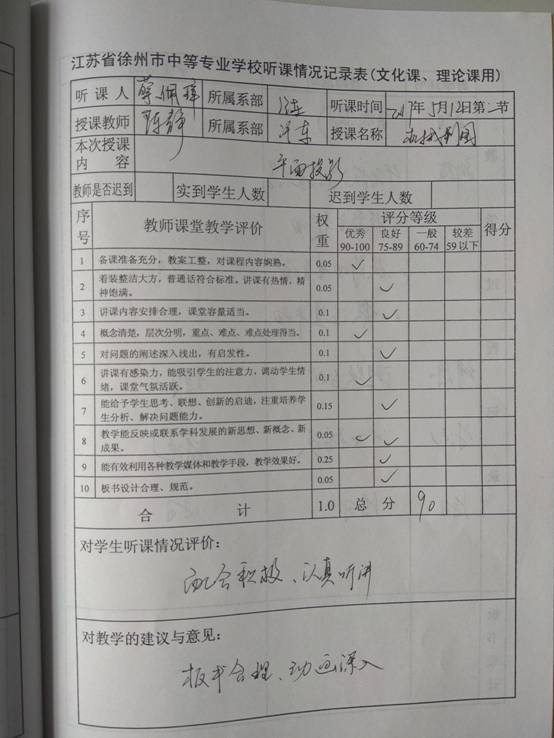 江苏省徐州市中等专业学校听课情况记录表(文化课、理论课用)
听课人 蔡佩璋 所属系部 汽车 听课时间 2017年5月12日第二节
授课教师 陈静 所属系部 汽车 授课名称 机械制图
本次授课内容 平面投影
教师是否迟到 实到学生人数 迟到学生人数
序号 教师课堂教学评价 权重 评分等级 得分
优秀 90-100 良好 75-89 一般 60-74 较差 59以下
1 备课准备充分,教案工整,对课程内容娴熟。 0.05 ✓
2 着装整洁大方,普通话符合标准。讲课有热情,精神饱满。 0.05 ✓
3 讲课内容安排合理,课堂容量适当。 0.1 ✓
4 概念清楚,层次分明,重点、难点、难点处理得当。 0.1 ✓
5 对问题的阐述深入浅出,有启发性。 0.1 ✓
6 讲课有感染力,能吸引学生的注意力,调动学生情绪,课堂气氛活跃。 0.1 ✓
7 能给予学生思考、联想、创新的启迪,注重培养学生分析、解决问题能力。 0.15 ✓
8 教学能反映或联系学科发展的新思想、新概念、新成果。 0.05 ✓ ✓
9 能有效利用各种教学媒体和教学手段,教学效果好。 0.25 ✓
10 板书设计合理、规范。 0.05 ✓
合计 1.0 总分 90
对学生听课情况评价:
配合积极、认真听讲
对教学的建议与意见:
板书合理、动画深入